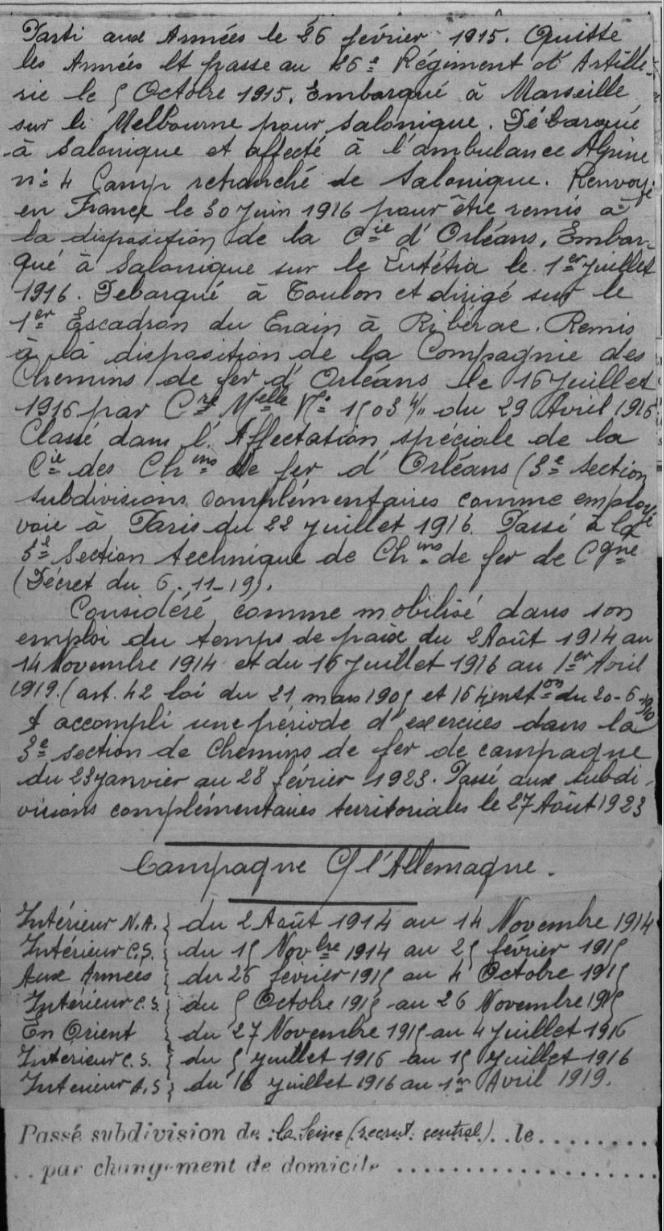 Parti aux Armées le 26 février 1915. Quitte
les Armées et passe au 26e Régiment d'Artille-
rie le 5 Octobre 1915. Embarqué à Marseille
sur le Melbourne pour Salonique. Débarqué
à Salonique et affecté à l'ambulance Alpine
n° 4 Camp retranché de Salonique. Renvoyé
en France le 30 Juin 1916 pour être remis à
la disposition de la Cie d'Orléans. Embar-
qué à Salonique sur le Lutétia le 1er Juillet
1916. Debarqué à Toulon et dirigé sur le
1er Escadron du Train à Ribérac. Remis
à la disposition de la Compagnie des
Chemins de fer d'Orléans le 16 Juillet
1916 par Cre Mlle N° 1503 du 29 Avril 1916
Classé dans l'Affectation spéciale de la
Cie des Chins de fer d'Orléans (3e section
subdivisions complémentaires comme employé
voie à Paris du 22 Juillet 1916. Passé à la
Section technique de Chins de fer de Cgne
(Décret du 6-11-19).
Considéré comme mobilisé dans son
emploi du temps de paix du 2 Août 1914 au
14 Novembre 1914 et du 16 Juillet 1916 au 1er Avril
1919. (art. 42 loi du 21 mars 1905 et 16 inston du 20-6-
A accompli une période d'exercices dans la
3e section de Chemins de fer de campagne
du 23 janvier au 28 février 1923. Passé aux subdi-
visions complémentaires territoriales le 27 Août 1923
Campagne C/ l'Allemagne.
Intérieur N.A. } du 2 Août 1914 au 14 Novembre 1914
Intérieur C.S. } du 15 Novbre 1914 au 25 février 1915
Aux Armées } du 26 février 1915 au 4 Octobre 1915
Intérieur C.S. } du 5 Octobre 1915 au 26 Novembre 1915
En Orient } du 27 Novembre 1915 au 4 Juillet 1916
Intérieur C.S. } du 5 Juillet 1916 au 15 Juillet 1916
Intérieur A.S } du 16 Juillet 1916 au 1er Avril 1919.
Passé subdivision de la Seine (recrut. central) le
par changement de domicile